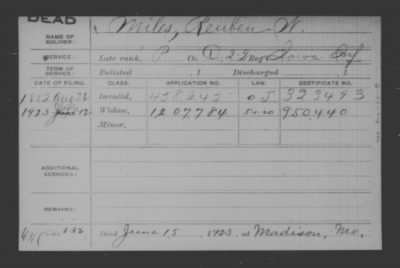 DEAD
NAME OF SOLDIER: Miles, Reuben W.
SERVICE: Late rank, P Co. D, 22 Reg't Iowa Inf
TERM OF SERVICE: Enlisted , 1 Discharged , 1
DATE OF FILING. CLASS. APPLICATION NO. LAW. CERTIFICATE NO.
1882 Aug 26 Invalid, 458,345 323493
1923 12 Widow, 1207784 950,440
Minor,
ADDITIONAL SERVICES:
REMARKS:
Died June 15, 1923, at Madison, Mo.